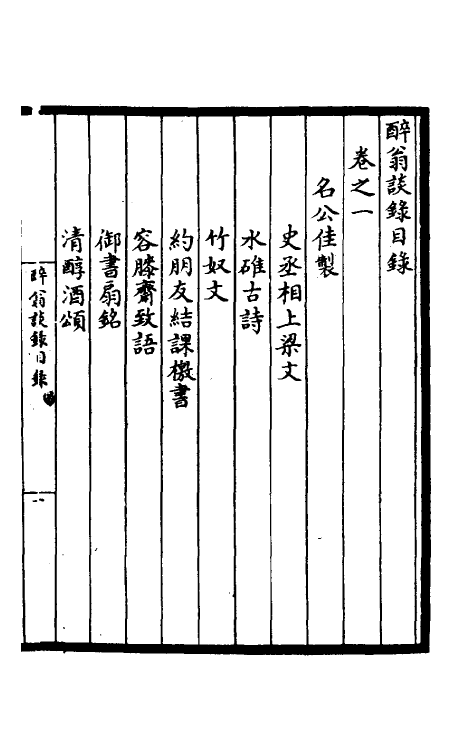 醉翁談錄目錄
卷之一
名公佳製
史丞相上梁文
水碓古詩
竹奴文
約朋友結課檄書
容膝齋致語
御書扇銘
清醇酒頌
醉翁談錄目錄
一